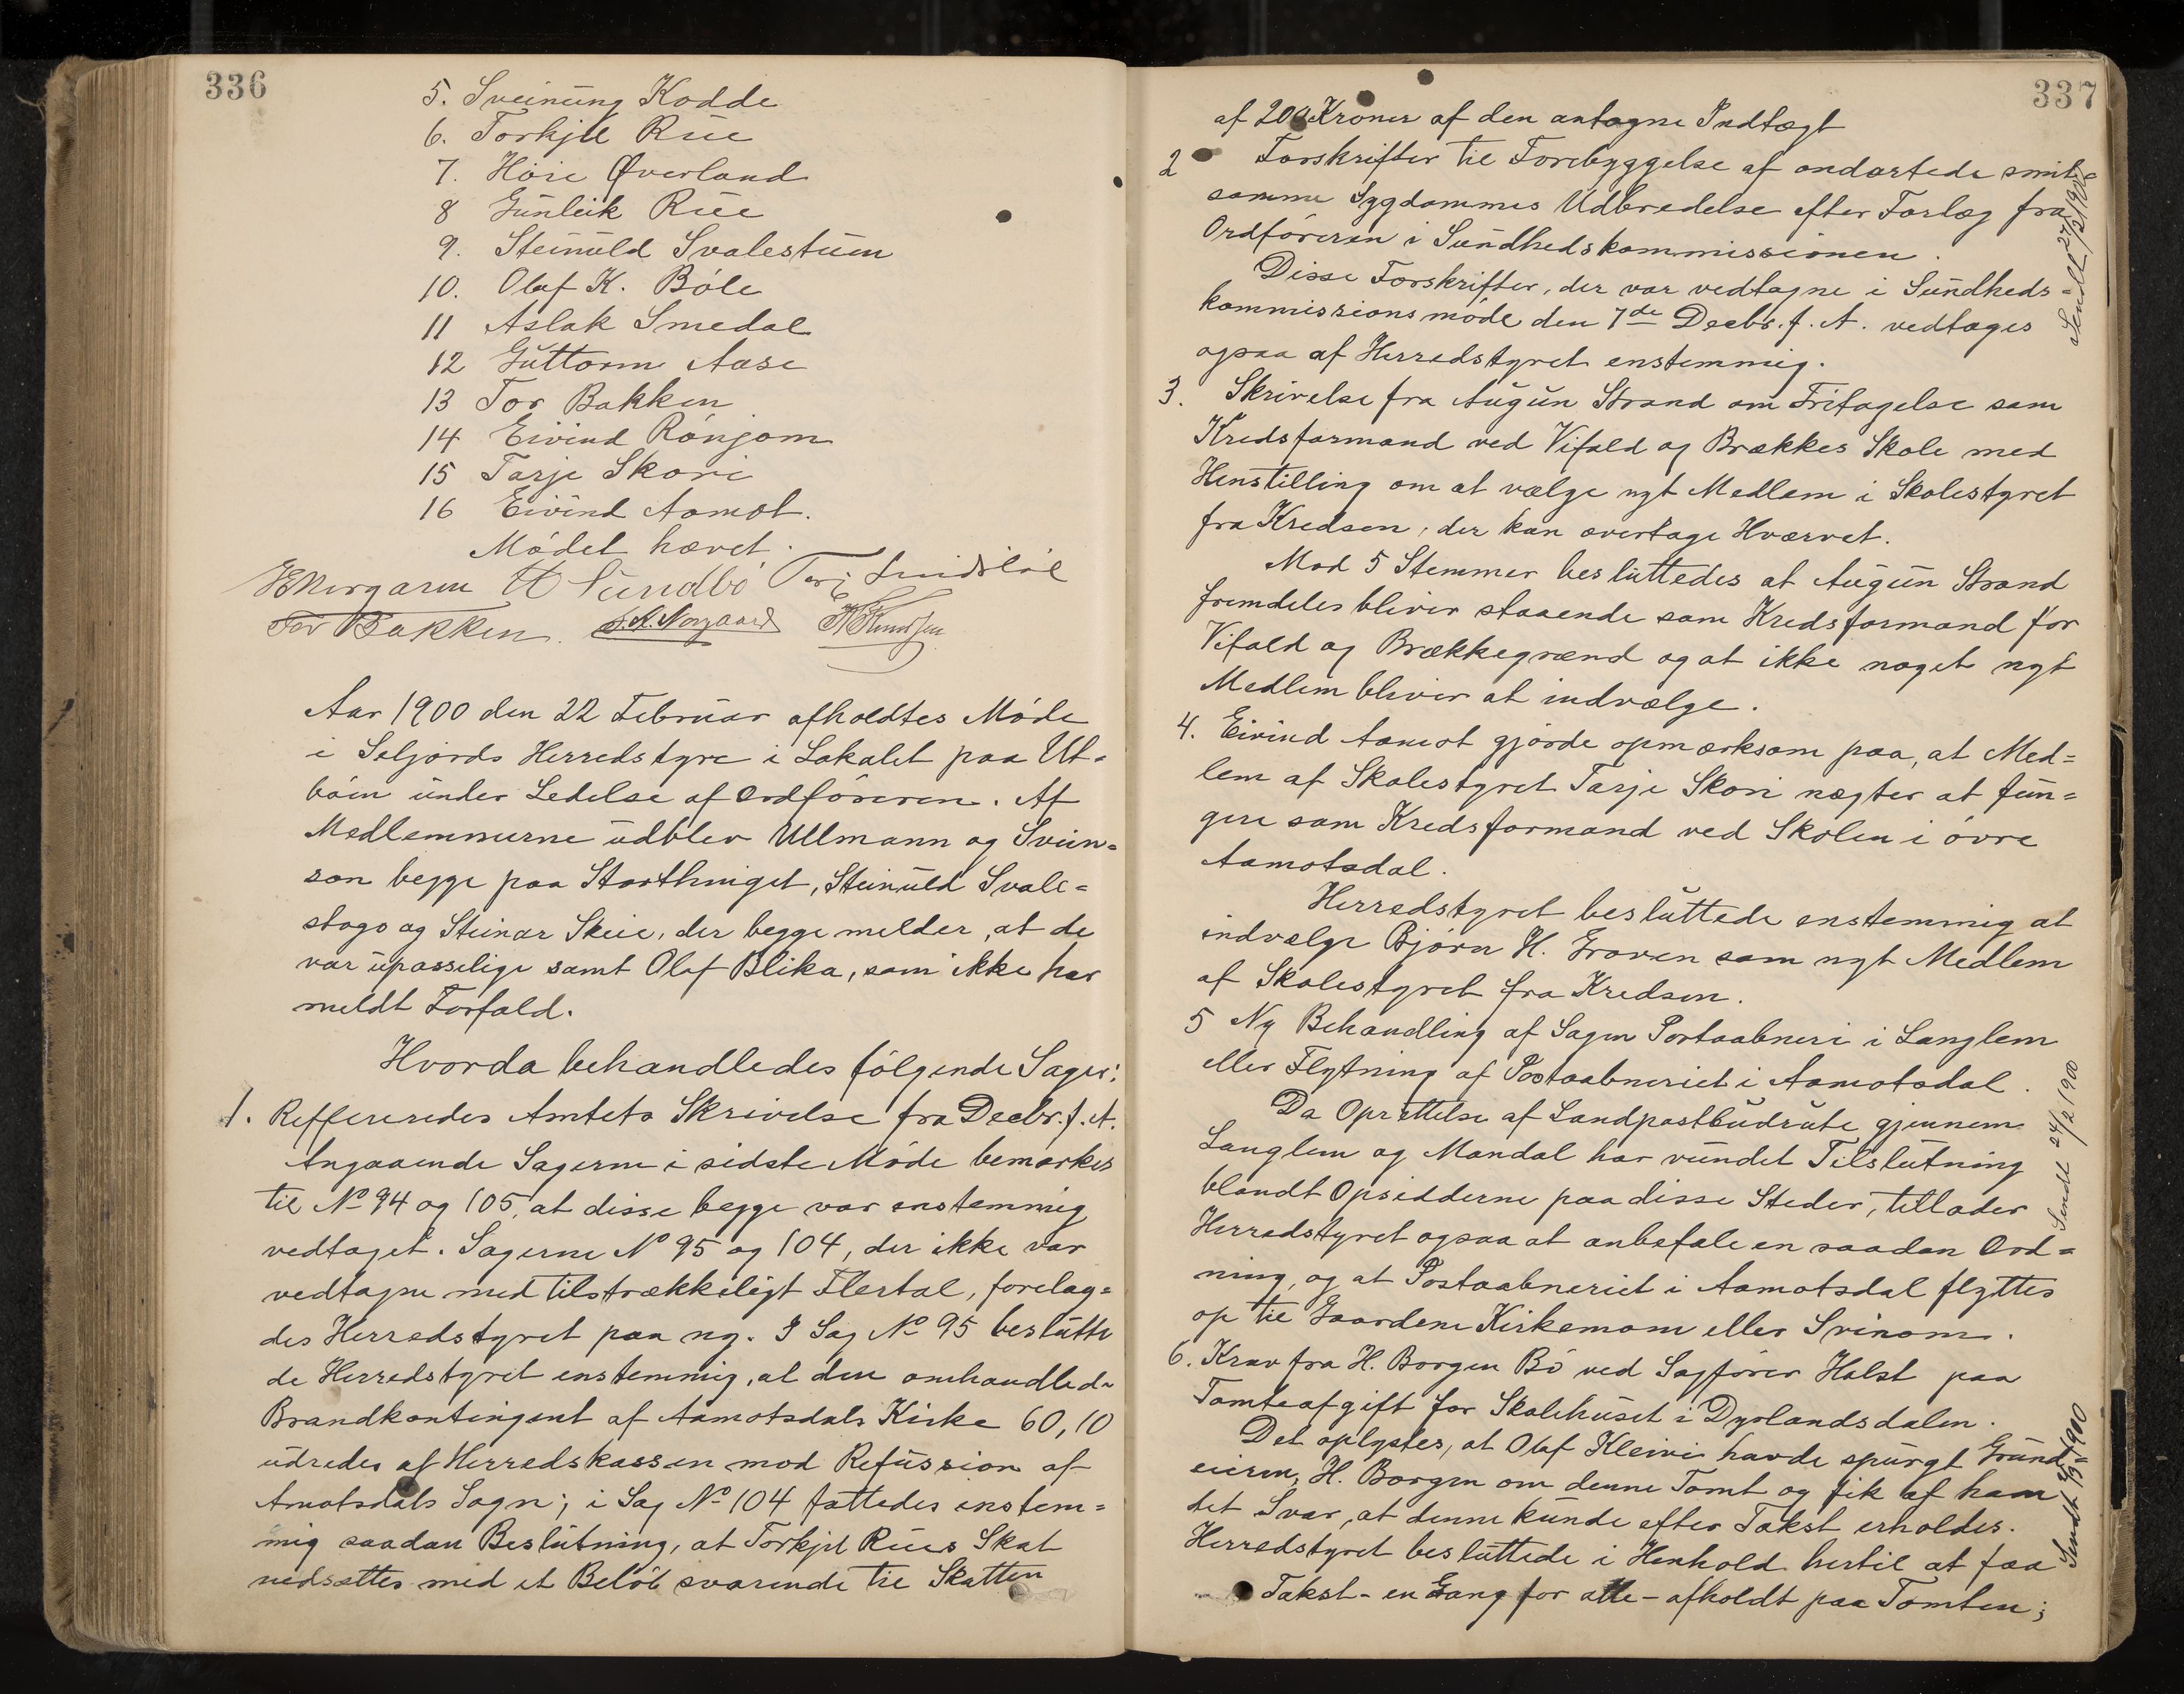 336
5. Sveinung Kodde
6. Torkjel Rue
7. Høie Øverland
8 Gunleik Rue
9. Steinuld Svalestuen
10. Olaf K. Bøle
11 Aslak Smedal
12 Guttorm Aase
13 Tor Bakken
14 Eivind Rønjom
15 Tarje Skori
16 Eivind Aamot.
Mødet hævet.
H Sundbø
Tor Bakken. Norgaard K Knudsen
Aar 1900 den 22 Februar afholdtes Møde
i Seljords Herredstyre i Lokalet paa Ut-
bøen under Ledelse af Ordføreren. Af
Medlemmerne udblev Ullmann og Svein-
son begge paa Storthinget, Steinuld Svale-
stogo og Steinar Skeie, der begge melder, at de
var upasselige samt Olaf Blika, som ikke har
meldt Forfald.
Hvorda behandledes følgende Sager:
1. Reffereredes Amtets Skrivelse fra Decbr. f. A.
Angaaende Sagerne i sidste Møde bemærkes
til No 94 og 105, at disse begge var enstemmig
vedtaget. Sagerne No 95 og 104, der ikke var
vedtagne med tilstrækkeligt Flertal, forelag-
des Herredstyret paa ny. I Sag No 95 beslutte
de Herredstyret enstemmig, at den omhandlede
Brandkontingent af Aamotsdals Kirke 60,10
udredes af Herredskassen mod Refussion af
Amotsdals Sogn; i Sag No 104 fattedes enstem-
mig saadan Beslutning, at Torkjel Rues Skat
nedsættes med et Beløb svarende til Skatten
337
af 200 Kroner af den antagne Indtægt
2 Forskrifter til Forebyggelse af ondartede smit-
somme Sygdommes Udbredelse efter Forlæg fra
Ordføreren i Sundhedskommissionen.
Disse Forskrifter, der var vedtagne i Sundheds-
kommissionsmøde den 7de Decbr. f. A. vedtages
ogsaa af Herredstyret enstemmig.
Sendt 27/2 1900
3. Skrivelse fra Augun Strand om Fritagelse som
Kredsformand ved Vefald og Brækkes Skole med
Henstilling om at vælge nyt Medlem i Skolestyret
fra Kredsen, der kan overtage Hvervet.
Mod 5 Stemmer besluttedes at Augun Strand
fremdeles bliver staaende som Kredsformand for
Vefald og Brækkegrænd og at ikke noget nyt
Medlem bliver at indvælge.
4. Eivind Aamot gjorde opmærksom paa, at Med-
lem af Skolestyret Tarje Skori nægter at fun-
gere som Kredsformand ved Skolen i øvre
Aamotsdal.
Herredstyret besluttede enstemmig at
indvælge Bjørn H. Groven som nyt Medlem
af Skolestyret fra Kredsen.
5 Ny Behandling af Sagen Postaabneri i Langlem
eller Flytning af Postaabneriet i Aamotsdal.
Da Oprettelse af Landpostbudrute gjennem
Langlem og Mandal har vundet Tilslutning
blandt Opsidderne paa disse Steder, tillader
Herredstyret ogsaa at anbefale en saadan Ord-
ning, og at Postaabneriet i Aamotsdal flyttes
op til Gaardene Kirkemom eller Svinom.
Sendt 24/2 1900
6. Krav fra H. Borgen Bø ved Sagfører Holst paa
Tomteafgift for Skolehuset i Dyrlandsdalen.
Det oplystes, at Olaf Kleivi havde spurgt Grund
eieren, H. Borgen om denne Tomt og fik af ham
det Svar, at denne kunde efter Takst erholdes.
Herredstyret besluttede i Henhold hertil at faa
Takst - en Gang for alle - afholdt paa Tomten;